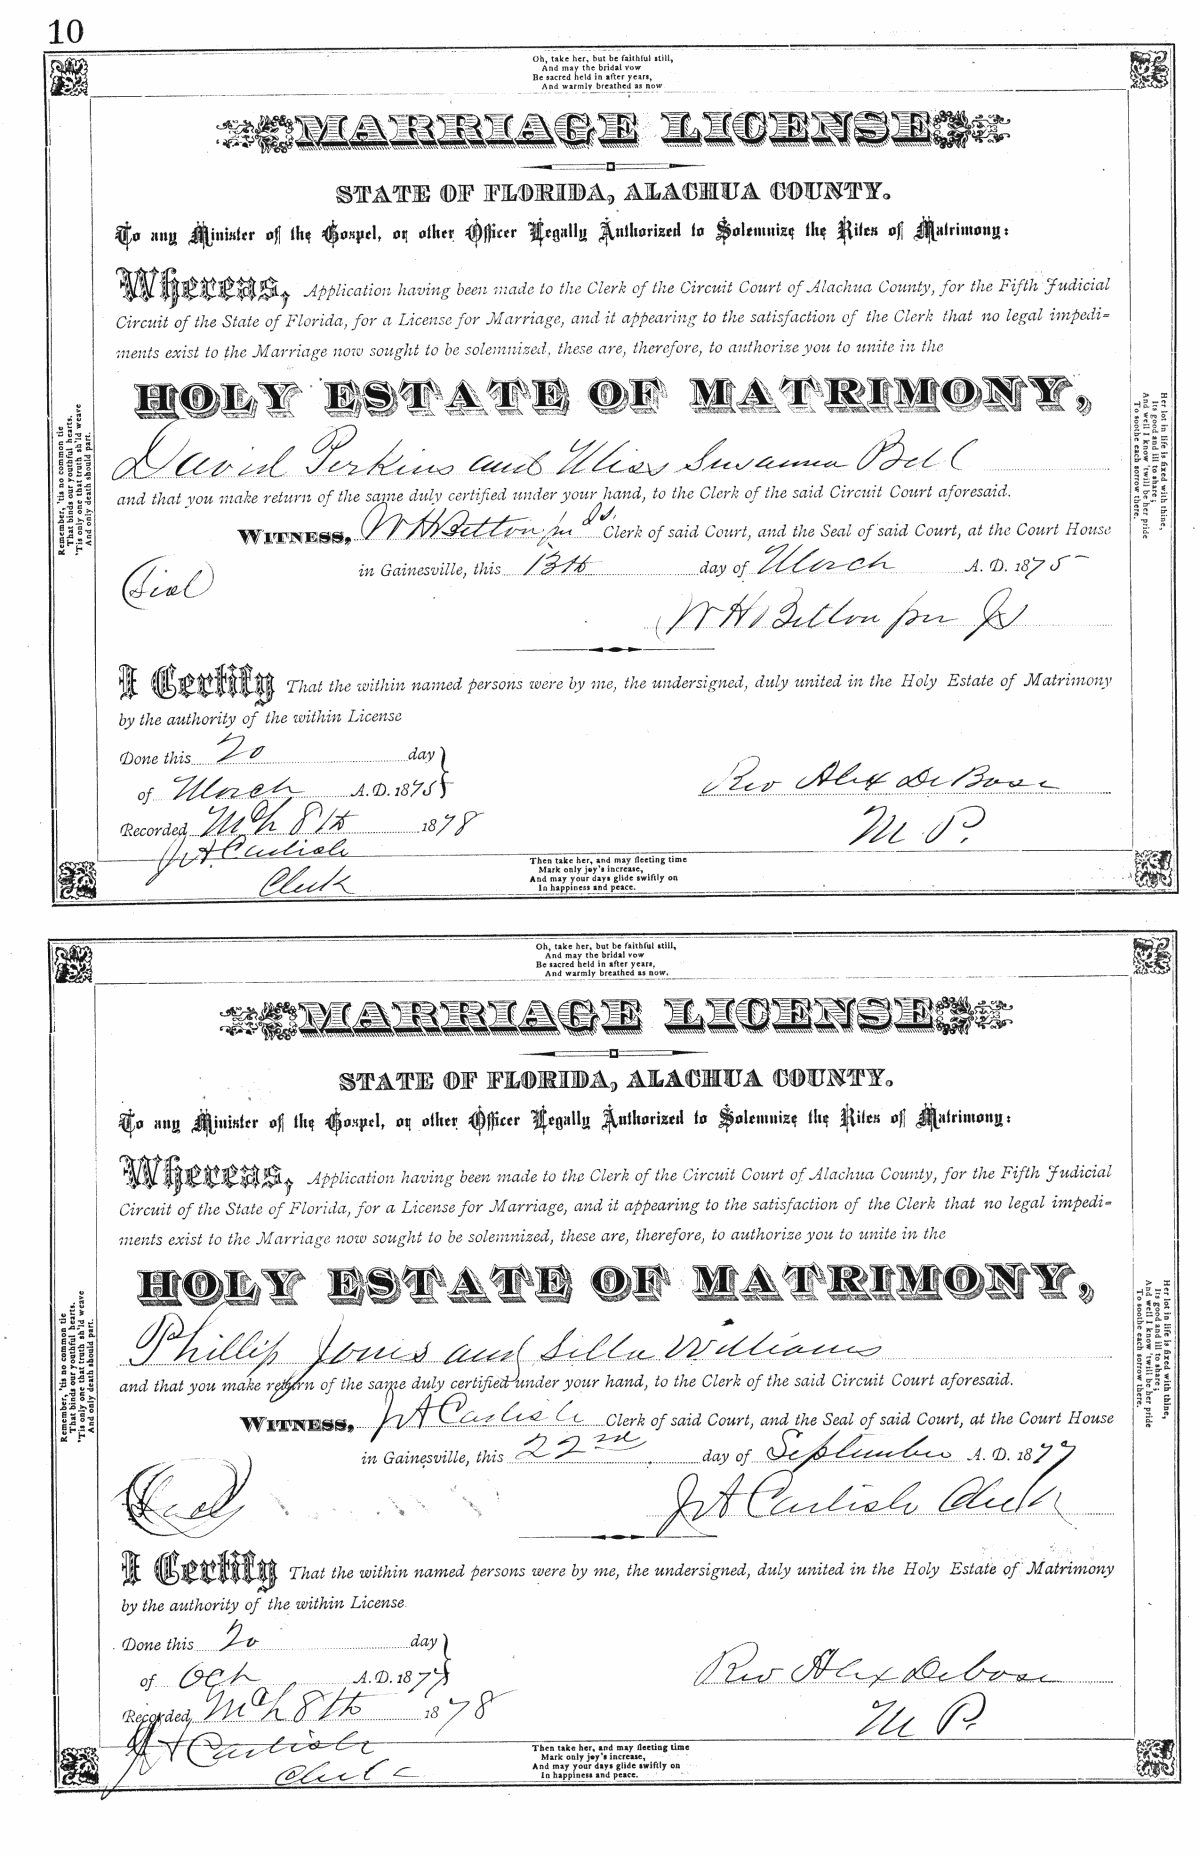 10
Oh, take her, but be faithful still,
And may the bridal vow
Be sacred held in after years,
And warmly breathed as now
MARRIAGE LICENSE
STATE OF FLORIDA, ALACHUA COUNTY.
To any Minister of the Gospel, or other Officer Legally Authorized to Solemnize the Rites of Matrimony:
Whereas, Application having been made to the Clerk of the Circuit Court of Alachua County, for the Fifth Judicial
Circuit of the State of Florida, for a License for Marriage, and it appearing to the satisfaction of the Clerk that no legal impedi-
ments exist to the Marriage now sought to be solemnized, these are, therefore, to authorize you to unite in the
HOLY ESTATE OF MATRIMONY,
David Perkins and Miss Susanna Bell
and that you make return of the same duly certified under your hand, to the Clerk of the said Circuit Court aforesaid.
WITNESS, W H Belton Clerk of said Court, and the Seal of said Court, at the Court House
in Gainesville, this 13th day of March A. D. 1875
(Seal)
W H Belton
I Certify That the within named persons were by me, the undersigned, duly united in the Holy Estate of Matrimony
by the authority of the within License
Done this 20 day
of March A. D. 1875
Rev Alex DeBose
Recorded Mch 8th 1878
M P.
J A Carlisle
Clerk
Then take her, and may fleeting time
Mark only joy's increase,
And may your days glide swiftly on
In happiness and peace.
Remember, 'tis no common tie
That binds our youthful hearts.
'Tis only one that truth sh'ld weave
And only death should part.
Her lot in life is fixed with thine,
Its good and ill to share;
And well I know 'twill be her pride
To soothe each sorrow there.
Oh, take her, but be faithful still,
And may the bridal vow
Be sacred held in after years,
And warmly breathed as now.
MARRIAGE LICENSE
STATE OF FLORIDA, ALACHUA COUNTY.
To any Minister of the Gospel, or other Officer Legally Authorized to Solemnize the Rites of Matrimony:
Whereas, Application having been made to the Clerk of the Circuit Court of Alachua County, for the Fifth Judicial
Circuit of the State of Florida, for a License for Marriage, and it appearing to the satisfaction of the Clerk that no legal impedi-
ments exist to the Marriage now sought to be solemnized, these are, therefore, to authorize you to unite in the
HOLY ESTATE OF MATRIMONY,
Phillip Jones and Silla Williams
and that you make return of the same duly certified under your hand, to the Clerk of the said Circuit Court aforesaid.
WITNESS, J A Carlisle Clerk of said Court, and the Seal of said Court, at the Court House
in Gainesville, this 22nd day of September A. D. 1877
(Seal)
J A Carlisle Clerk
I Certify That the within named persons were by me, the undersigned, duly united in the Holy Estate of Matrimony
by the authority of the within License
Done this 20 day
of Oct A. D. 1877
Rev Alex Debose
Recorded Mch 8th 1878
M P.
J A Carlisle
Clerk
Then take her, and may fleeting time
Mark only joy's increase,
And may your days glide swiftly on
In happiness and peace.
Remember, 'tis no common tie
That binds our youthful hearts.
'Tis only one that truth sh'ld weave
And only death should part.
Her lot in life is fixed with thine,
Its good and ill to share;
And well I know 'twill be her pride
To soothe each sorrow there.